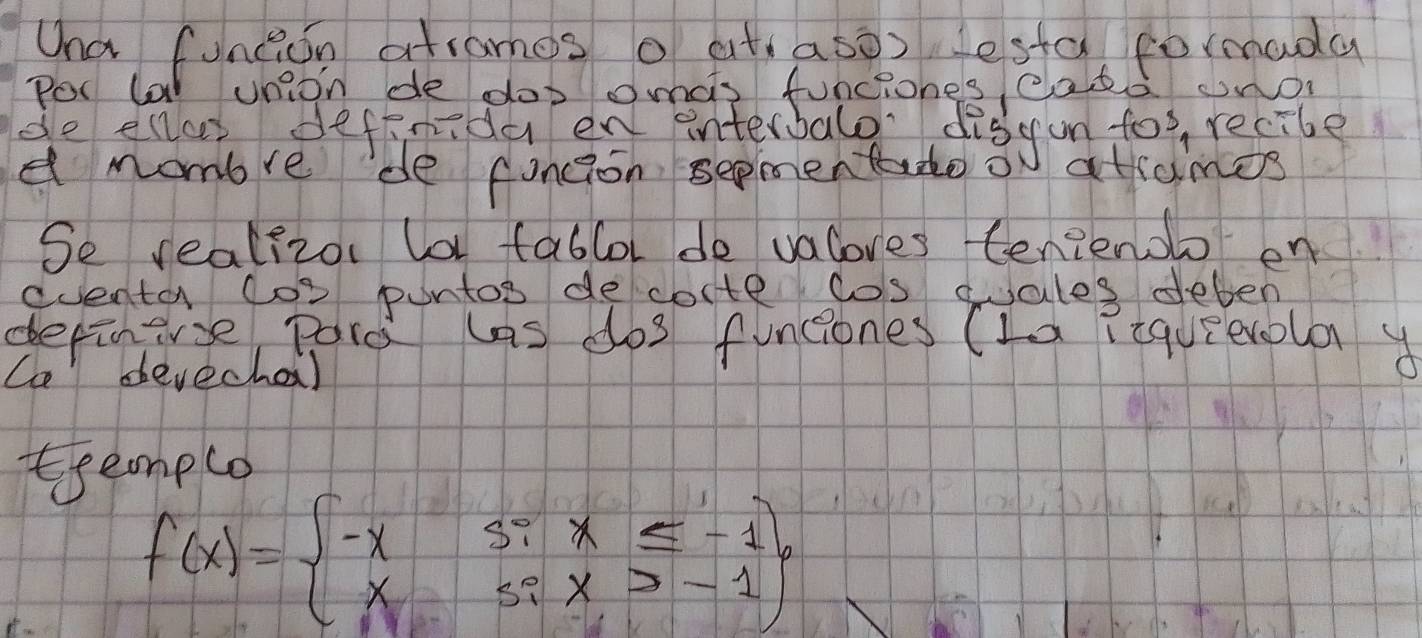 Una función atramos o atrasos esta formada
por la unión de dos omas funciones, cada una
de ellas definida en interbalo disyuntos, recibe
el nombre de función sepmentado o atramos
Se realiza la tabla de valores teniendo en
cuenta los puntos de corte los cuales deben
definirse para las dos funciones (la izquierda y
la derecha)
Ejemplo
f(x) = { -x si x ≤ -1
x si x > -1 }